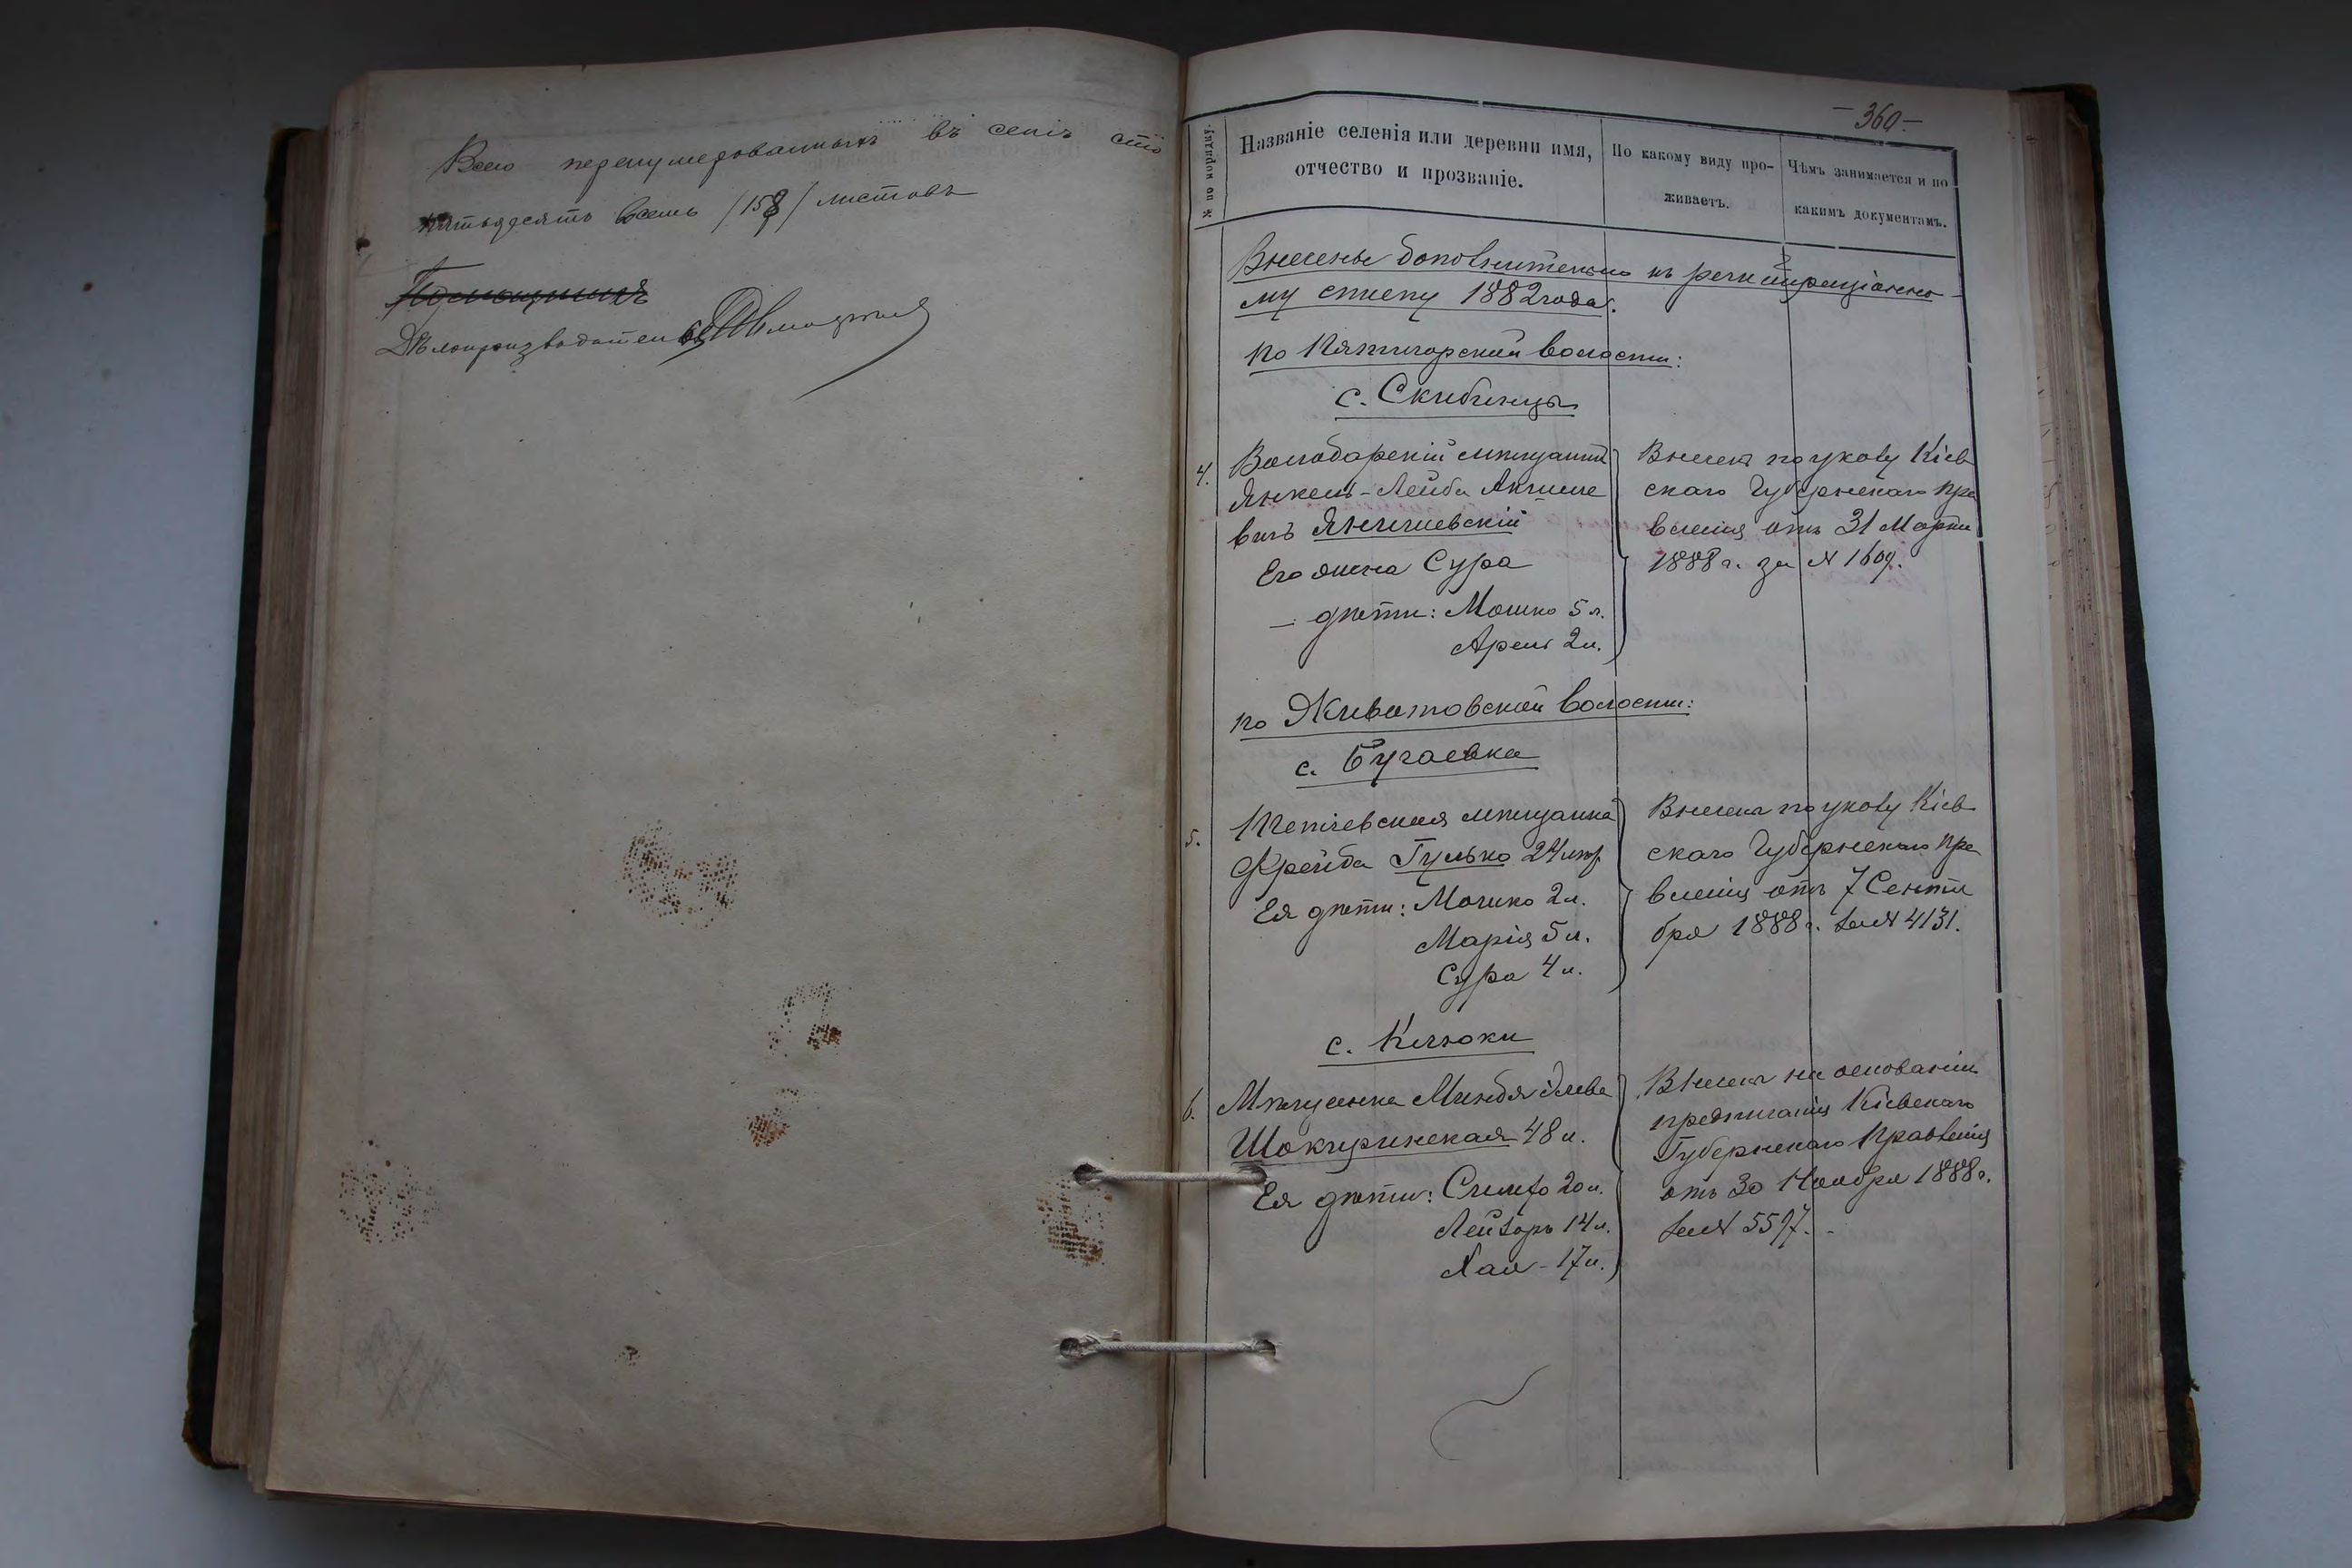 Всего перенумерованныхъ въ семъ сто
пятьдесятъ восемь /158/ листовъ
Помощникъ
Дѣлопроизводитель
-360-
№ по порядку.
Названіе селенія или деревни имя,
отчество и прозваніе.
По какому виду про-
живаетъ.
Чѣмъ занимается и по
какимъ документамъ.
Внесены дополнительно къ регистраціонно-
му списку 1882 года.
по Пятигорской волости:
с. Скибинцы
4.
Володарскій мѣщанинъ
Янкель-Лейба
вичъ Янишевскій
Его жена Сура
— дѣти: Мошко 5 л.
Арель 2 л.
Внесенъ по указу Кіев
скаго Губернскаго Пра
вленія отъ 31 Марта
1888 г. за № 1609.
по Животовской волости:
с. Бугаевка
5.
Тетіевская мѣщанка
Фрейда Гулько 24 лѣт
Ея дѣти: Мошко 2 л.
Марія 5 л.
Сура 4 л.
Внесена по указу Кіев
скаго Губернскаго Пра
вленія отъ 7 Сентя
бря 1888 г. за № 4131.
с. Клюки
6.
Мѣщанка Миндя
Шокиринская 48 л.
Ея дѣти: 20 л.
Лейзоръ 14 л.
Хая - 17 л.
Внесена на основаніи
предписанія Кіевскаго
Губернскаго Правленія
отъ 30 Ноября 1888 г.
за № 5597.